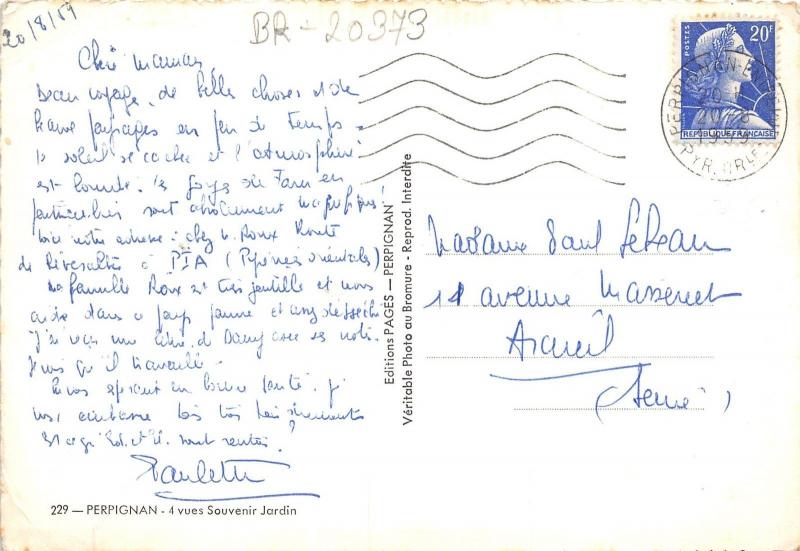 20/8/59
BR-20373
Chère maman,
Beau voyage, de belles choses et de
paysages en peu de temps
le soleil se cache et l'atmosphère
est lourde. Les Gorges du Tarn en
particulier sont absolument magnifiques
Voici notre adresse: chez M. Roux Route
de Rivesaltes à PIA (Pyrénées orientales)
La famille Roux est très gentille et nous
dans ce pays jaune et assez desséché
J'ai une lettre de Dany avec ses notes.
qu'il travaille.
en bonne santé. Je
vous embrasse tous trois
Est ce que et sont rentrés?
Paulette
229 — PERPIGNAN - 4 vues Souvenir Jardin
Editions PAGES — PERPIGNAN
Véritable Photo au Bromure - Reprod. Interdite
POSTES
20F
REPUBLIQUE FRANÇAISE
PERPIGNAN
PYR. ORLES
Madame Paul Lebeau
11 avenue Massenet
Arcueil
(Seine)